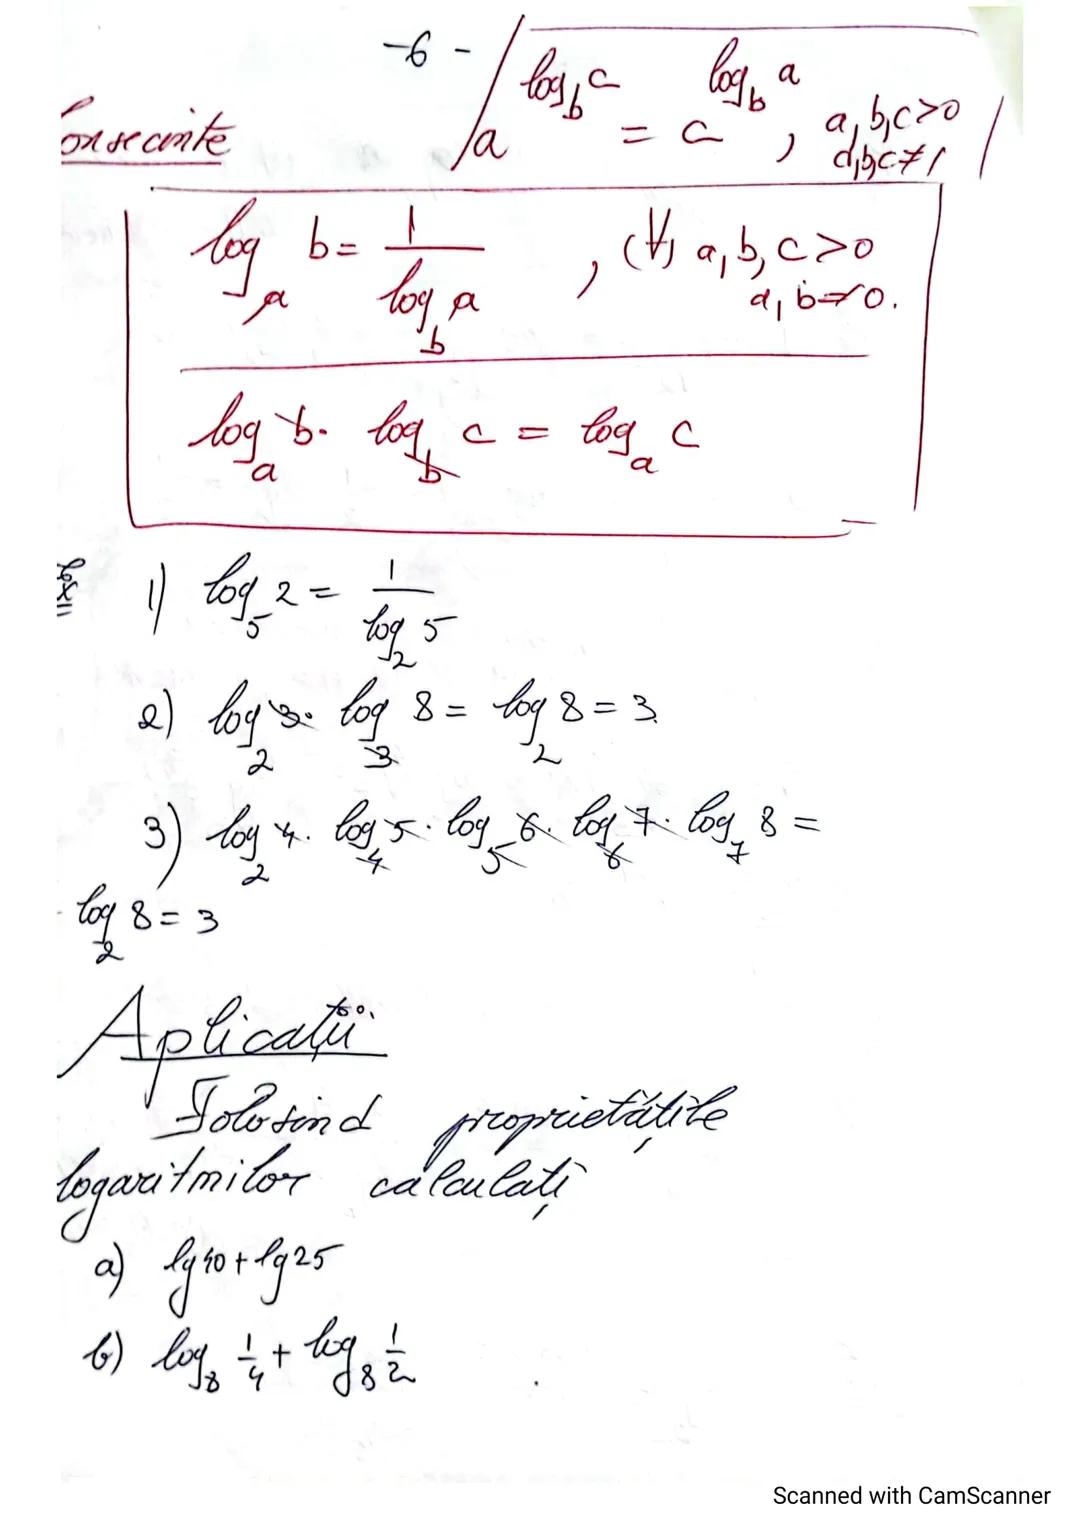 -6-
a^(log_b c) = c^(log_b a), a,b,c>0
a,b,c≠1
Consecințe
log_a b = 1/(log_b a), (∀) a,b,c>0
a,b≠0.
log_a b · log_b c = log_a c
Ex 1) log_5 2 = 1/(log_2 5)
2) log_2 3 · log_3 8 = log_2 8 = 3.
3) log_2 4 · log_4 5 · log_5 6 · log_6 7 · log_7 8 =
log_2 8 = 3
Aplicații
Folosind proprietățile
logaritmilor calculați
a) lg 40 + lg 25
b) log_8 1/4 + log_8 1/2
Scanned with CamScanner